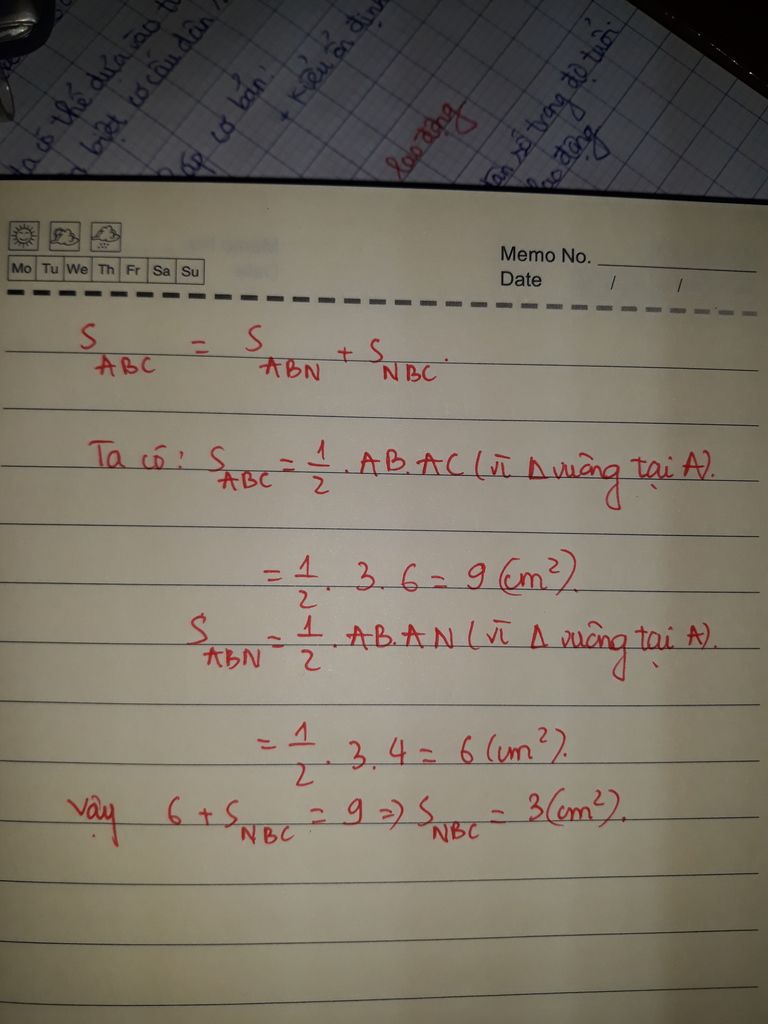 ta có thể dựa vào
biệt cơ cấu dân
cơ bản:
+ kiểu ổn định
lao động
dân số trong độ tuổi
lao động
Memo No.
Mo Tu We Th Fr Sa Su
Date / /
S_ABC = S_ABN + S_NBC.
Ta có: S_ABC = 1/2 . AB.AC (vì Δ vuông tại A).
= 1/2 . 3. 6 = 9 (cm²).
S_ABN = 1/2 . AB.AN (vì Δ vuông tại A).
= 1/2 . 3. 4 = 6 (cm²).
Vậy 6 + S_NBC = 9 => S_NBC = 3 (cm²).